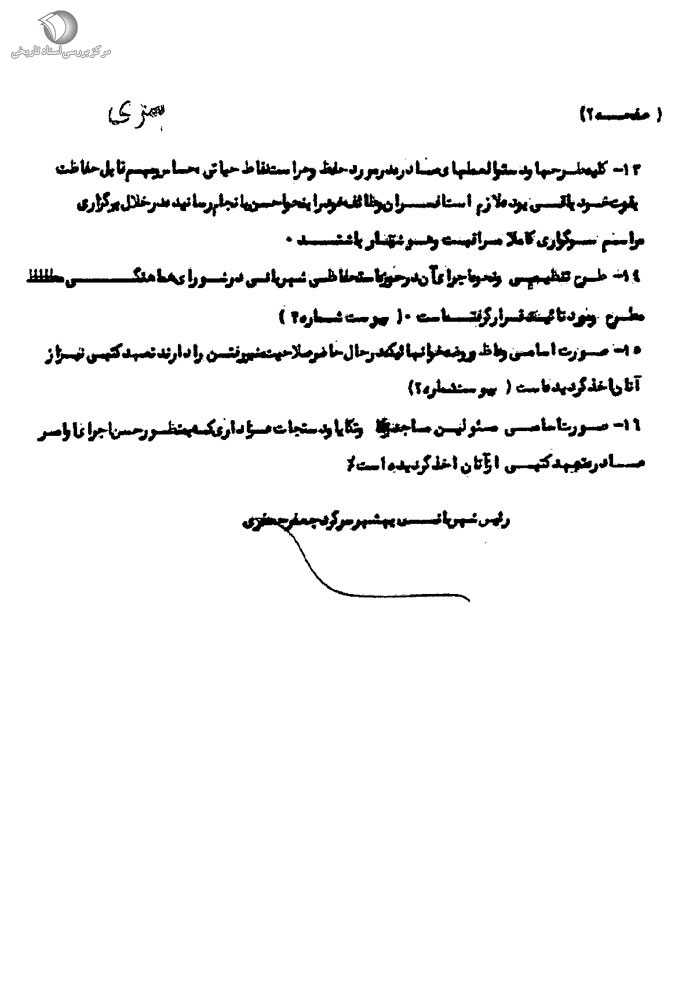 مرکز بررسی اسناد تاریخی
( صفحه ۲)
سری
۱۳- کلیه طرحها و دستورالعملهای صادره در مورد حفظ و حراست نقاط حیاتی حساس و مهم قابل حفاظت
بقوت خود باقی بوده لازم است افسران وظائف خود را بنحو احسن بانجام رسانیده در خلال برگزاری
مراسم سوگواری کاملا مراقبت و هوشیار باشند ۰
۱۴- طرح تنظیمی و نحوه اجرای آن در حوزه استحفاظی شهربانی در شورای هماهنگی
مطرح و مورد تائید قرار گرفته است ۰( پیوست شماره ۳ )
۱۵- صورت اسامی وعاظ و روضه خوانهائیکه در حال حاضر صلاحیت منبر رفتن را دارند تعهد کتبی نیز از
آنان اخذ گردیده است ( پیوست شماره ۲)
۱۶- صورت اسامی مسئولین مساجد و تکایا و دستجات عزاداری که بمنظور حسن اجرای اوامر
صادره تعهد کتبی از آنان اخذ گردیده است/
رئیس شهربانی بهشهر سرگرد جعفر جعفری